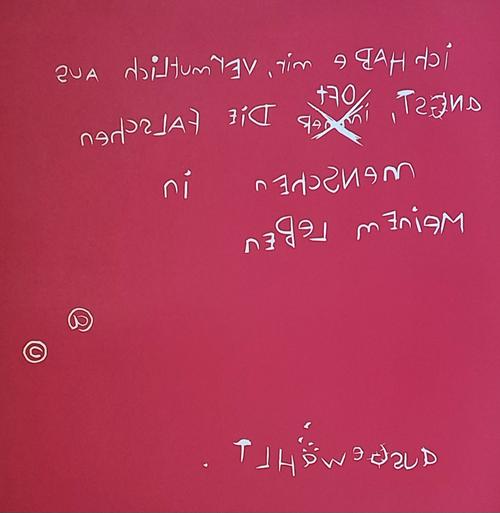 ich HABe mir, VERmutlich AUS
ANGST, immer OFt DiE FALSchen
menSCHEn in
MEinEm LeBEn
@
©
AUSGewäHLT.